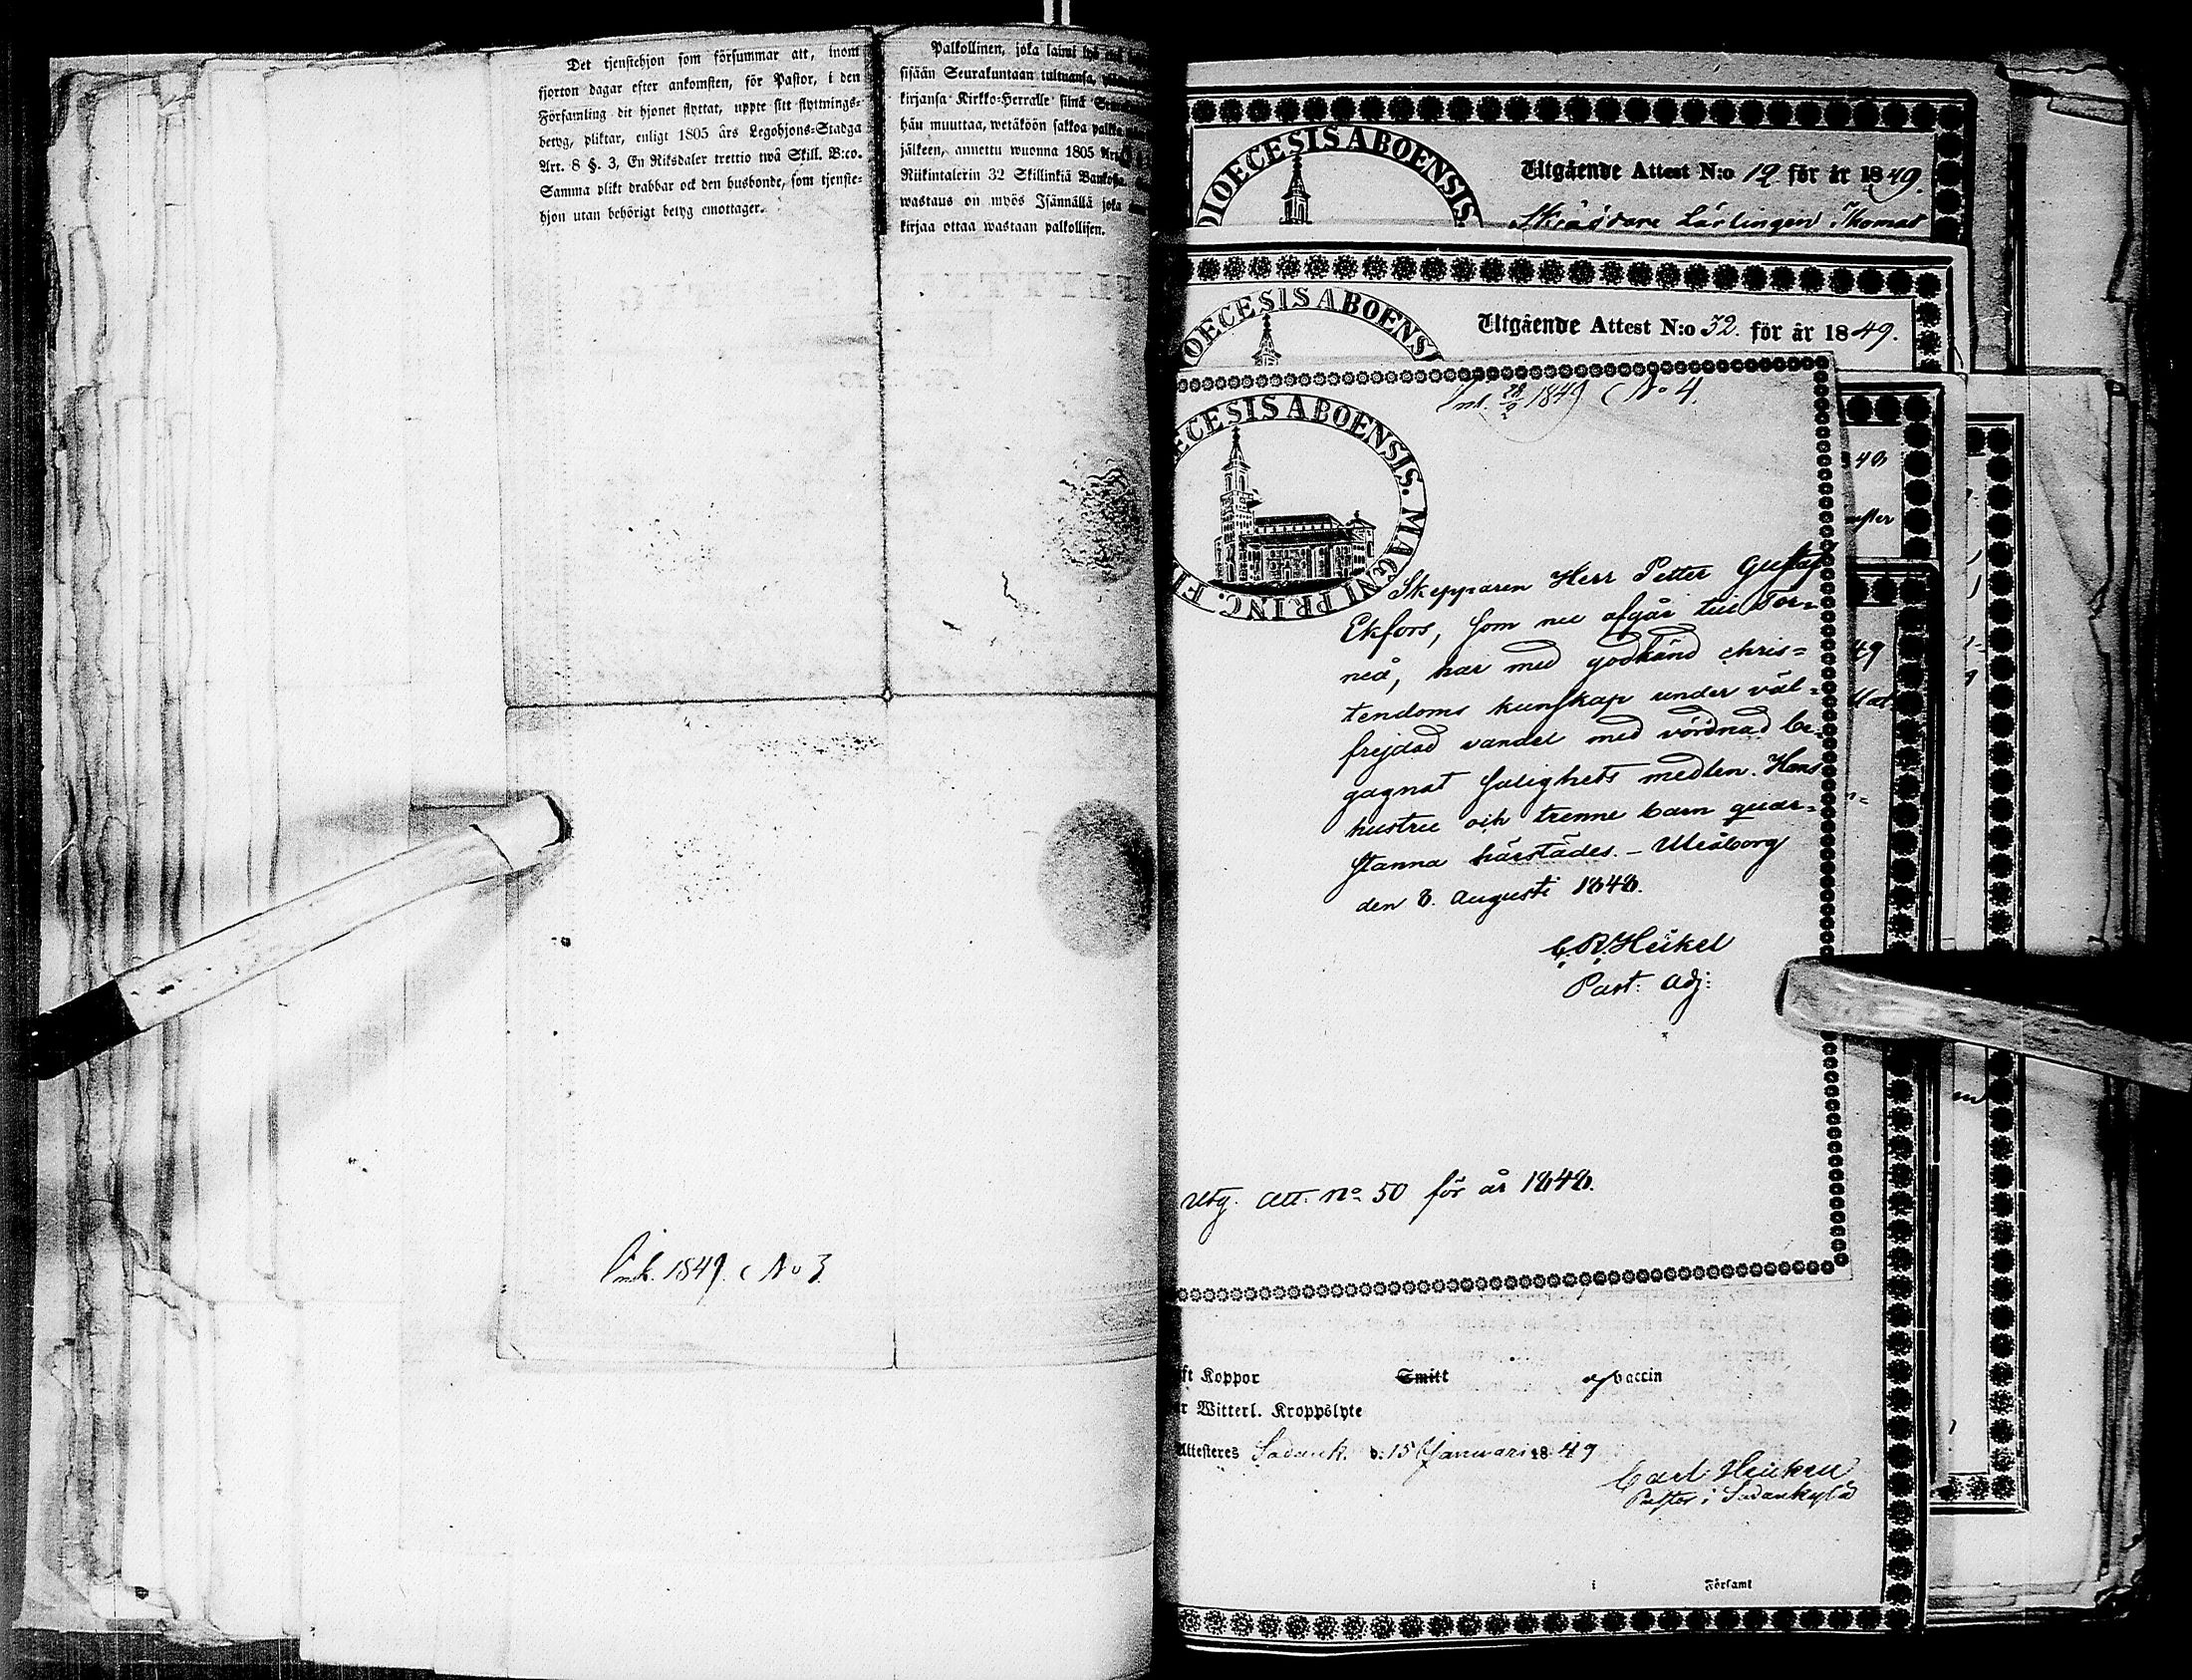 Det tjenstehjon som försummar att, inom
fjorton dagar efter ankomsten, för Pastor, i den
Församling dit hjonet flyttat, uppte sitt flyttnings-
betyg, pliktar, enligt 1805 års Legohjons-Stadga
Art. 8 §. 3, En Riksdaler trettio twå Skill. B:co.
Samma plikt drabbar ock den husbonde, som tjenste-
hjon utan behörigt betyg emottager.
Palkollinen, joka laimi
sisään Seurakuntaan tultuansa,
kirjansa Kirkko-Herralle siinä
hän muuttaa, wetäköön sakkoa palkka
jälkeen, annettu wuonna 1805 Art.
Riikintalerin 32 Skillinkiä Bankossa.
wastaus on myös Isännällä joka
kirjaa ottaa wastaan palkollisen.
Ink. 1849. No 3.
DIOECESIS ABOENSIS
Utgående Attest N:o 12 för år 1849.
Skräddare Lärlingen Thomas
OECESIS ABOENS
Utgående Attest N:o 32. för år 1849.
Ink. 28/2 1849 No 4.
ECESIS ABOENSIS. MAGNI PRINC. FI
Skepparen Herr Petter Gustaf
Ekfors, som nu afgår till Tor=
neå, har med godkänd chris=
tendoms kunskap under väl=
frejdad vandel med vördnad be=
gagnat salighets medlen. Hans
hustru och trenne barn quar=
stanna härstädes. – Uleåborg
den 8. Augusti 1848.
C. R. Heikel
Past: Adj:
Utg. Att. No 50 för år 1848.
ft Koppor Smitt af vaccin
r Witterl. Kroppslyte
Attesteres Sodank. d. 15 Januari 1849
Carl Heiken
Pastor i Sodankylä
i Församl